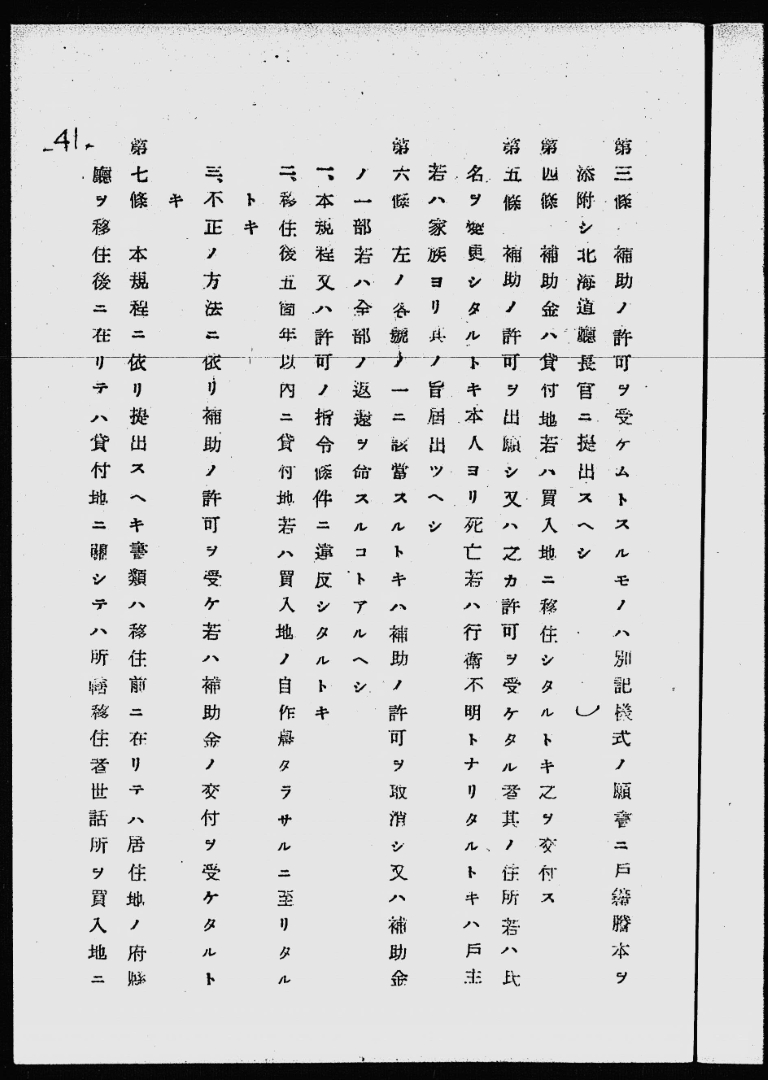 第三條　補助ノ許可ヲ受ケムトスルモノハ別記樣式ノ願書ニ戶籍謄本ヲ
添附シ北海道廳長官ニ提出スヘシ
第四條　補助金ハ貸付地若ハ買入地ニ移住シタルトキ之ヲ交付ス
第五條　補助ノ許可ヲ出願シ又ハ之カ許可ヲ受ケタル者其ノ住所若ハ氏
名ヲ變更シタルトキ本人ヨリ死亡若ハ行衞不明トナリタルトキハ戶主
若ハ家族ヨリ其ノ旨屆出ツヘシ
第六條　左ノ各號ノ一ニ該當スルトキハ補助ノ許可ヲ取消シ又ハ補助金
ノ一部若ハ全部ノ返還ヲ命スルコトアルヘシ
一、本規程又ハ許可ノ指令條件ニ違反シタルトキ
二、移住後五箇年以內ニ貸付地若ハ買入地ノ自作農タラサルニ至リタル
トキ
三、不正ノ方法ニ依リ補助ノ許可ヲ受ケ若ハ補助金ノ交付ヲ受ケタルト
キ
第七條　本規程ニ依リ提出スヘキ書類ハ移住前ニ在リテハ居住地ノ府縣
廳ヲ移住後ニ在リテハ貸付地ニ關シテハ所轄移住者世話所ヲ買入地ニ
-41-